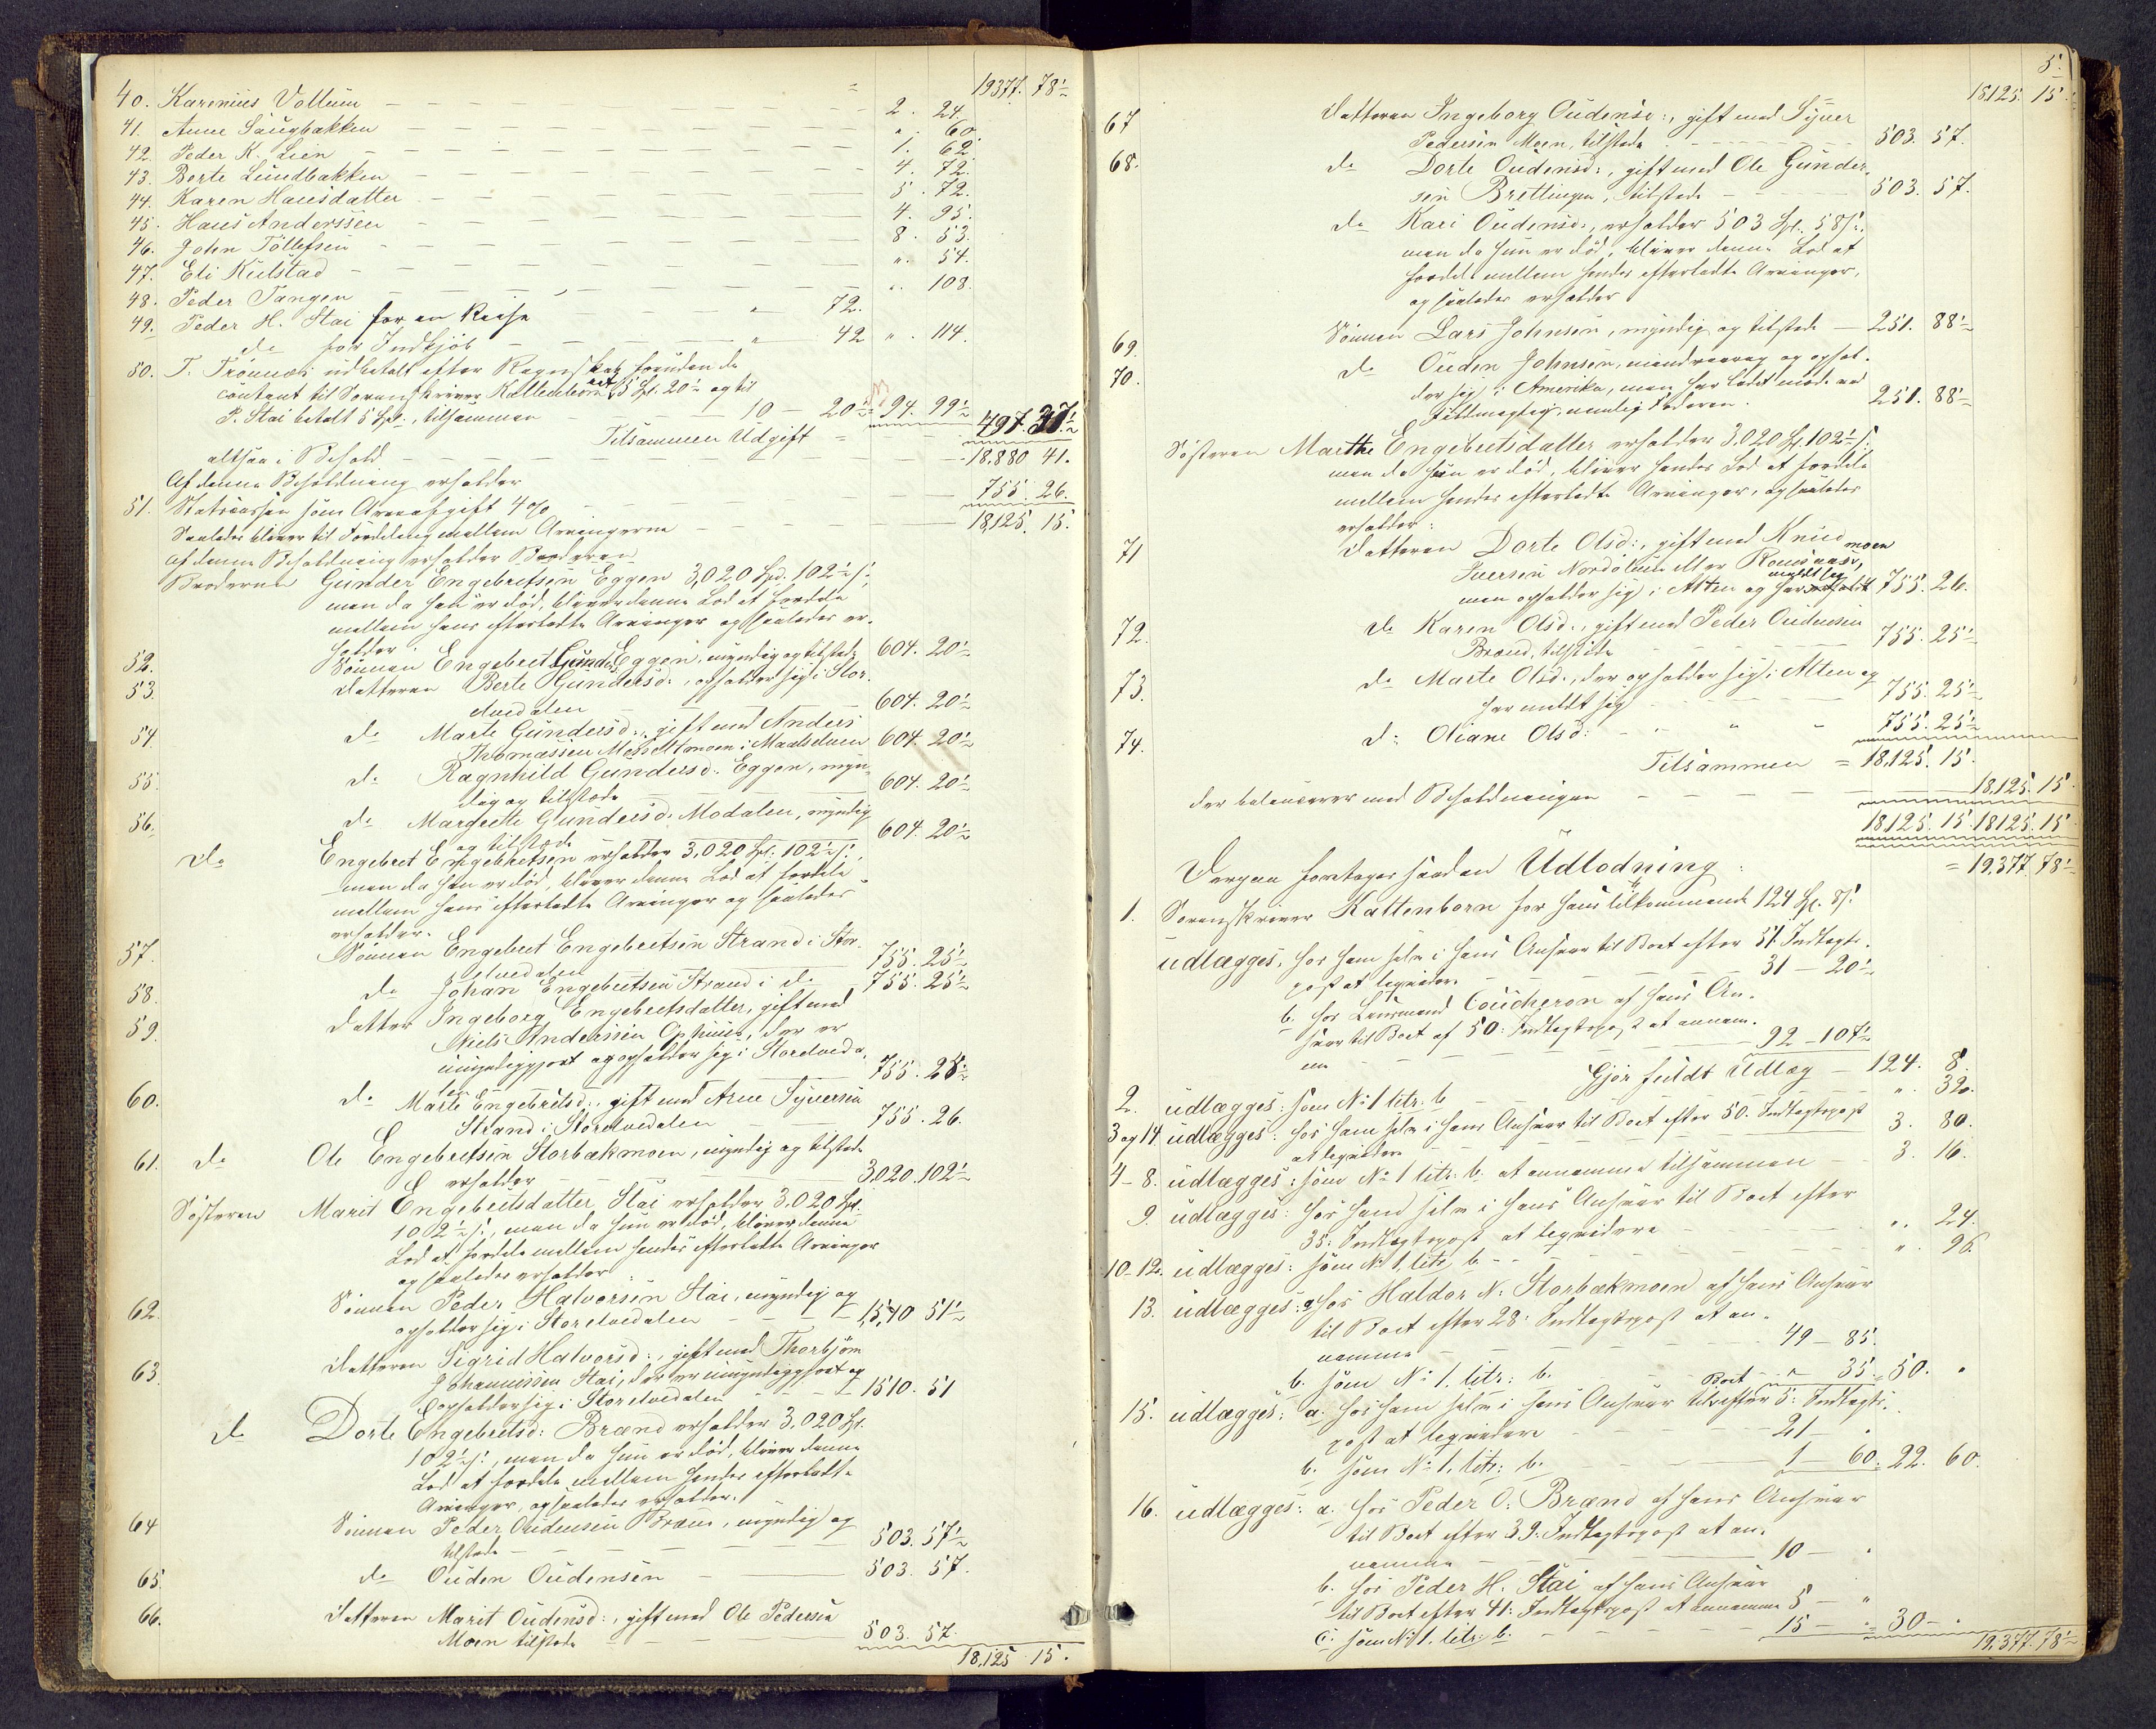 19377. 78½
40. Karenius Vollum — 2. 24.
41. Anne Saugbakken — „ 60
42. Peder K. Lien — 1. 62.
43. Berte Lundbakken — 4. 72.
44. Karen Hansdatter — 5. 72.
45. Hans Anderssen — 4. 95.
46. John Tollefsen — 8. 53.
47. Eli Kulstad — „ 54.
48. Peder Tangen — „ 108.
49. Peder H. Stai for en Reise „ 72.
do for Indkjøb „ 42 „ 114.
50. T. Trønnæs udbetalt efter Regnskab foruden de
contant til Sorenskriver Kattenborn 5 Spd. 20½ og til
P. Stai betalt 5 Spd., tilsammen — 10 — 20½ = 94. 99½
Tilsammen Udgift = 497. 37½
altsaa i Behold — 18,880 41.
Af denne Beholdning erholder
51. Statscassen som Arveafgift 4% — 755. 26.
Saaledes bliver til Fordeling mellem Arvingerne — 18,125. 15.
af denne Beholdning erholder Broderen
Broderen Gunder Engebretsen Eggen 3,020 Spd. 102½ s.,
men da han er død, bliver denne Lod at fordele
mellem hans efterladte Arvinger og saaledes er-
holder:
52. Sønnen Engebret Gunders Eggen, myndig og tilstede 604. 20½
53. Datteren Berte Gundersd:, opholder sig i Stor-
elvedalen — 604. 20½
54. do Marte Gundersd:, gift med Anders
Thomassen Moen i Maalselven 604. 20½
55. do Ragnhild Gundersd: Eggen, myn-
dig og tilstede — 604. 20½
56. do Margrete Gundersd: Modalen, myndig
og tilstede 604. 20½
do Engebret Engebretsen erholder 3,020 Spd. 102½ s.,
men da han er død, bliver denne Lod at fordele
mellem hans efterladte Arvinger og saaledes
erholder:
57. Sønnen Engebret Engebretsen Strand i Stor-
elvedalen 755. 25½
58. do Johan Engebretsen Strand i do 755. 25½
59. Datter Ingeborg Engebretsdatter, gift med
Niels Anderssen Ophuus, der er
umyndiggjort og opholder sig i Storelveda-
len 755. 25½
60. do Marte Engebretsd:, gift med Arne Syversen
Strand i Storelvedalen — 755. 26.
61. do Ole Engebretsen Storbækmoen, myndig og tilstede
erholder — 3,020. 102½
Søsteren Marit Engebretsdatter Stai erholder 3,020 Spd.
102½ s., men da hun er død, bliver denne
Lod at fordele mellem hendes efterladte Arvinger
og saaledes erholder:
62. Sønnen Peder Halvorsen Stai, myndig og
opholder sig i Storelvedalen — 1,510 51½
63. Datteren Sigrid Halvorsd:, gift med Thorbjørn
Johannessen Stai, der er umyndiggjort og
opholder sig i Storelvedalen — 1510. 51
do Dorte Engebretsd: Brænd erholder 3,020 Spd.
102½ s., men da hun er død, bliver denne
Lod at fordele mellem hendes efterladte
Arvinger, og saaledes erholder:
64 Sønnen Peder Oudensen Brænd, myndig og
tilstede — 503. 57½
65. do Ouden Oudensen — 503. 57.
66. Datteren Marit Oudensd:, gift med Ole Pedersen
Moen tilstede — 503. 57.
18,125 15.
5.
18,125. 15.
67 Datteren Ingeborg Oudensd:, gift med Syver
Pedersen Moen, tilstede — 503. 57.
68. do Dorte Oudensd:, gift med Ole Gunder-
sen Brettingen, tilstede — 503. 57.
do Kari Oudensd:, erholder 503 Spd. 58 s.,
men da hun er død, bliver denne Lod at
fordele mellem hendes efterladte Arvinger,
og saaledes erholder
69. Sønnen Lars Johnsen, myndig og tilstede — 251. 88½
70. do Ouden Johnsen, mindreaarig og ophol-
der sig i Amerika, men har ladet møde ved
Fuldmægtig, nemlig Faderen. 251. 88½
Søsteren Marthe Engebretsdatter erholder 3,020 Spd. 102½ s.
men da hun er død, bliver hendes Lod at fordele
mellem hendes efterladte Arvinger, og saaledes
erholder:
71 Datteren Dorte Olsd:, gift med Knud
Iversen Nordolum eller Romsaasmoen,
men opholder sig i Alten og har meldt sig 755. 26.
72. do Karen Olsd:, gift med Peder Oudensen
Brænd, tilstede — 755. 25½
73. do Marte Olsd:, der opholder sig i Alten og
har meldt sig — 755. 25½
74. do Oliane Olsd: — „ „ 755. 25½
Tilsammen = 18,125. 15.
der balancerer med Beholdningen — 18,125. 15.
18,125. 15. 18125. 15.
Derpaa foretages saadan Udlodning: = 19,377. 78½
1. Sorenskriver Kattenborn for hans tilkommende 124 Spd. 8 s.
udlægges, hos ham selv i hans Ansvar til Boet efter 51 Indtægts-
post at liqvidere — 31 — 20½
b. hos Lensmand Coucheron af hans An-
svar til Boet af 50: Indtægtspost at annam-
me — 92 — 107½
Gjør fuldt Udlæg — 124. 8.
2. udlægges: som No 1 litr. b — „ 32.
3 og 14 udlægges: hos ham selv i hans Ansvar til Boet efter 50. Indtægtspost
at liqvidere — 3. 80.
4–8. udlægges: som No 1 litr. b. at annamme tilsammen — 3. 16.
9. udlægges: hos ham selv i hans Ansvar til Boet efter
35: Indtægtspost at liqvidere — „ 24.
10–12. udlægges: som No 1, litr. b. — „ 96.
13. udlægges: a hos Haldor N. Storbækmoen af hans Ansvar
til Boet efter 28: Indtægtspost at an-
namme — 49 — 85.
b. som No 1. litr: b. — „ 35. 50. „
15. udlægges: a. hos ham selv i hans Ansvar til Boet efter 5: Indtægts-
post at liqvidere — 21 — „
b. som No 1. litr: b. — 1 — 60. 22. 60.
16. udlægges: a. hos Peder O: Brænd af hans Ansvar
til Boet efter 39: Indtægtspost at an-
namme — 10 — „
b. hos Peder H. Stai af hans Ansvar
til Boet efter 41: Indtægtspost at annamme 5 — „
c. som No 1. litr. b. — 15 — „ 30 — „
19,377. 78½